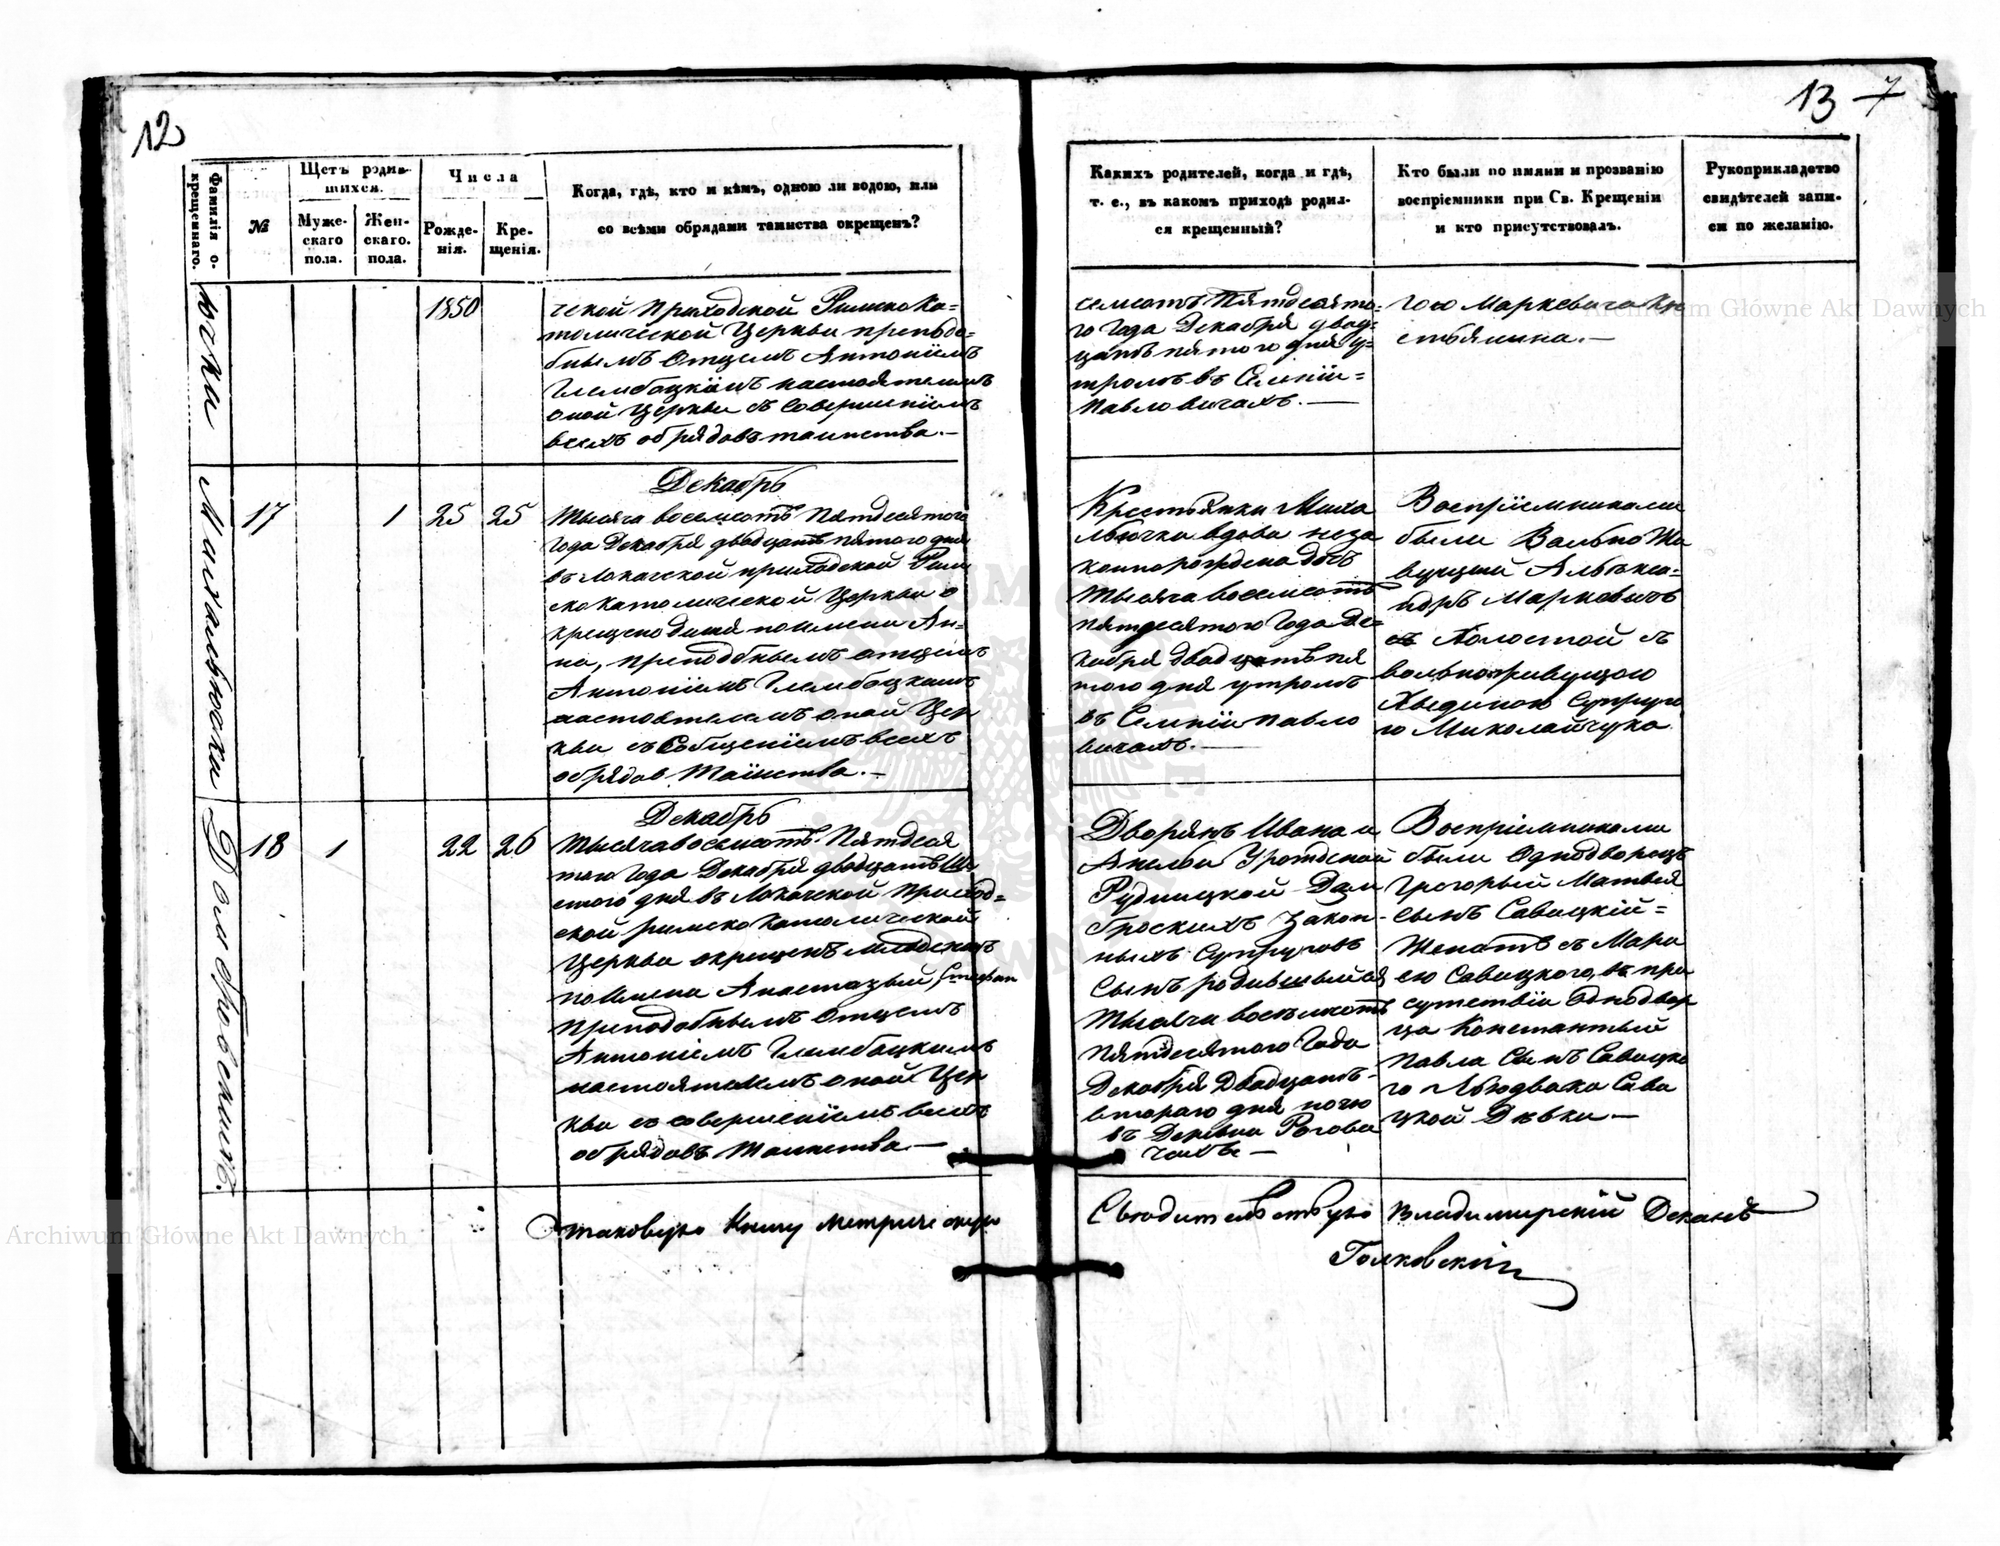 12
Фамилія о-
крещеннаго.
№
Щетъ родив-
шихся.
Муже-
скаго
пола.
Жен-
скаго.
пола.
Числа
Рожде-
нія.
Кре-
щенія.
Когда, гдѣ, кто и кѣмъ, одною ли водою, или
со всѣми обрядами таинства окрещенъ?
1850
ческой Приходской Римско Ка=
толической Церкви преподо=
бнымъ Отцемъ Антоніемъ
Глембоцкимъ настоятелемъ
оной Церкви съ совершеніемъ
всехъ обрядовъ таинства.—
Михальчохи
17
1
25
25
Декабрь
Тысяча восемсотъ Пятдесятого
Года Декабря двадцать пятого дня
въ Локачской приходской Рим
ско католической Церкви о
крещено дитя по имени Ан-
на, преподобнымъ отцемъ
Антоніемъ Глембоцкимъ
настоятелемъ оной Цер
кви съ Собщеніемъ всехъ
обрядов Таинства.—
Домбровскихъ.
18
1
22
26
Декабрь
Тысяча восемсотъ Пятдеся
таго Года Декабря двадцать Ше
стого дня въ Локачской Приход=
ской римско Католической
Церкви окрещенъ младенецъ
по Имени Анастазый Стефан
Преподобнымъ Отцемъ
Антоніемъ Глембоцкимъ
настоятелемъ оной Цер
кви со совершеніемъ всехъ
обрядовъ Таинства—
Таковую Книгу Метрическую
13 7
Какихъ родителей, когда и гдѣ,
т. е., въ какомъ приходѣ родил-
ся крещенный?
Кто были по имяни и прозванію
воспріемники при Св. Крещеніи
и кто присутствовалъ.
Рукоприкладство
свидѣтелей запи-
си по желанію.
семсотъ Пятдесято=
го Года Декабря двад=
цать пятого дня у=
тромъ въ Селкіи=
Павловичахъ.—
гою Маркевича Кре
стьянина.—
Крестьянки Миха
льючки вдова неза
коннорождена дочь
Тысяча восемсотъ
пятдесятого Года Де=
кабря двадцать пя
того дня утромъ
въ Селкіи Павло
вичахъ.—
Воспріемниками
были Вольно Жи
вущий Алѣкса=
ндръ Марковичъ
Холостой съ
вольноживущого
Супруго
ю Миколайчука
Дворянъ Ивана и
Анелѣи Урожденой
Рудницкой Дом
бровскихъ Закон-
ныхъ Супруговъ
Сынъ родившыйся
Тысяча восемсотъ
Пятдесятого Года
Декабря Двадцать-
второго дня ночю
въ Деревни Рогови
чахъ—
Воспріемниками
были Однодворецъ
Григорый Матвея
сынъ Савицкій=
Женатъ съ Мари
ею Савицкого, въ при
сутствіи Однодвор
ца Константый
Павла Сынъ Савицко
го Людвика Сави
цкой Дѣвки—
Свидительствую Владимирскій Деканъ
Голковскій
Archiwum Główne Akt Dawnych
Archiwum Główne Akt Dawnych